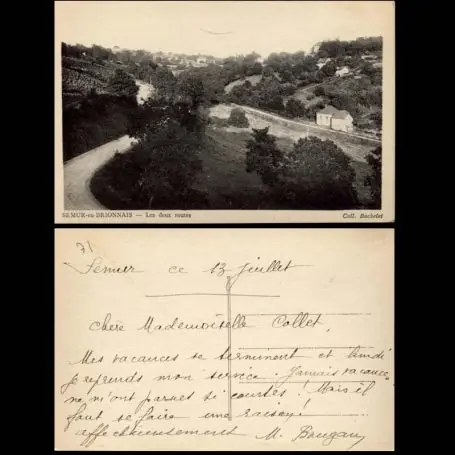 SEMUR-EN-BRIONNAIS — Les deux routes
Coll. Bachelet
71
Semur ce 13 juillet
Chère Mademoiselle Collet,
Mes vacances se terminent et lundi
je reprends mon service. Jamais vacances
ne m'ont parues si courtes! Mais il
faut se faire une raison!
affectueusement M.